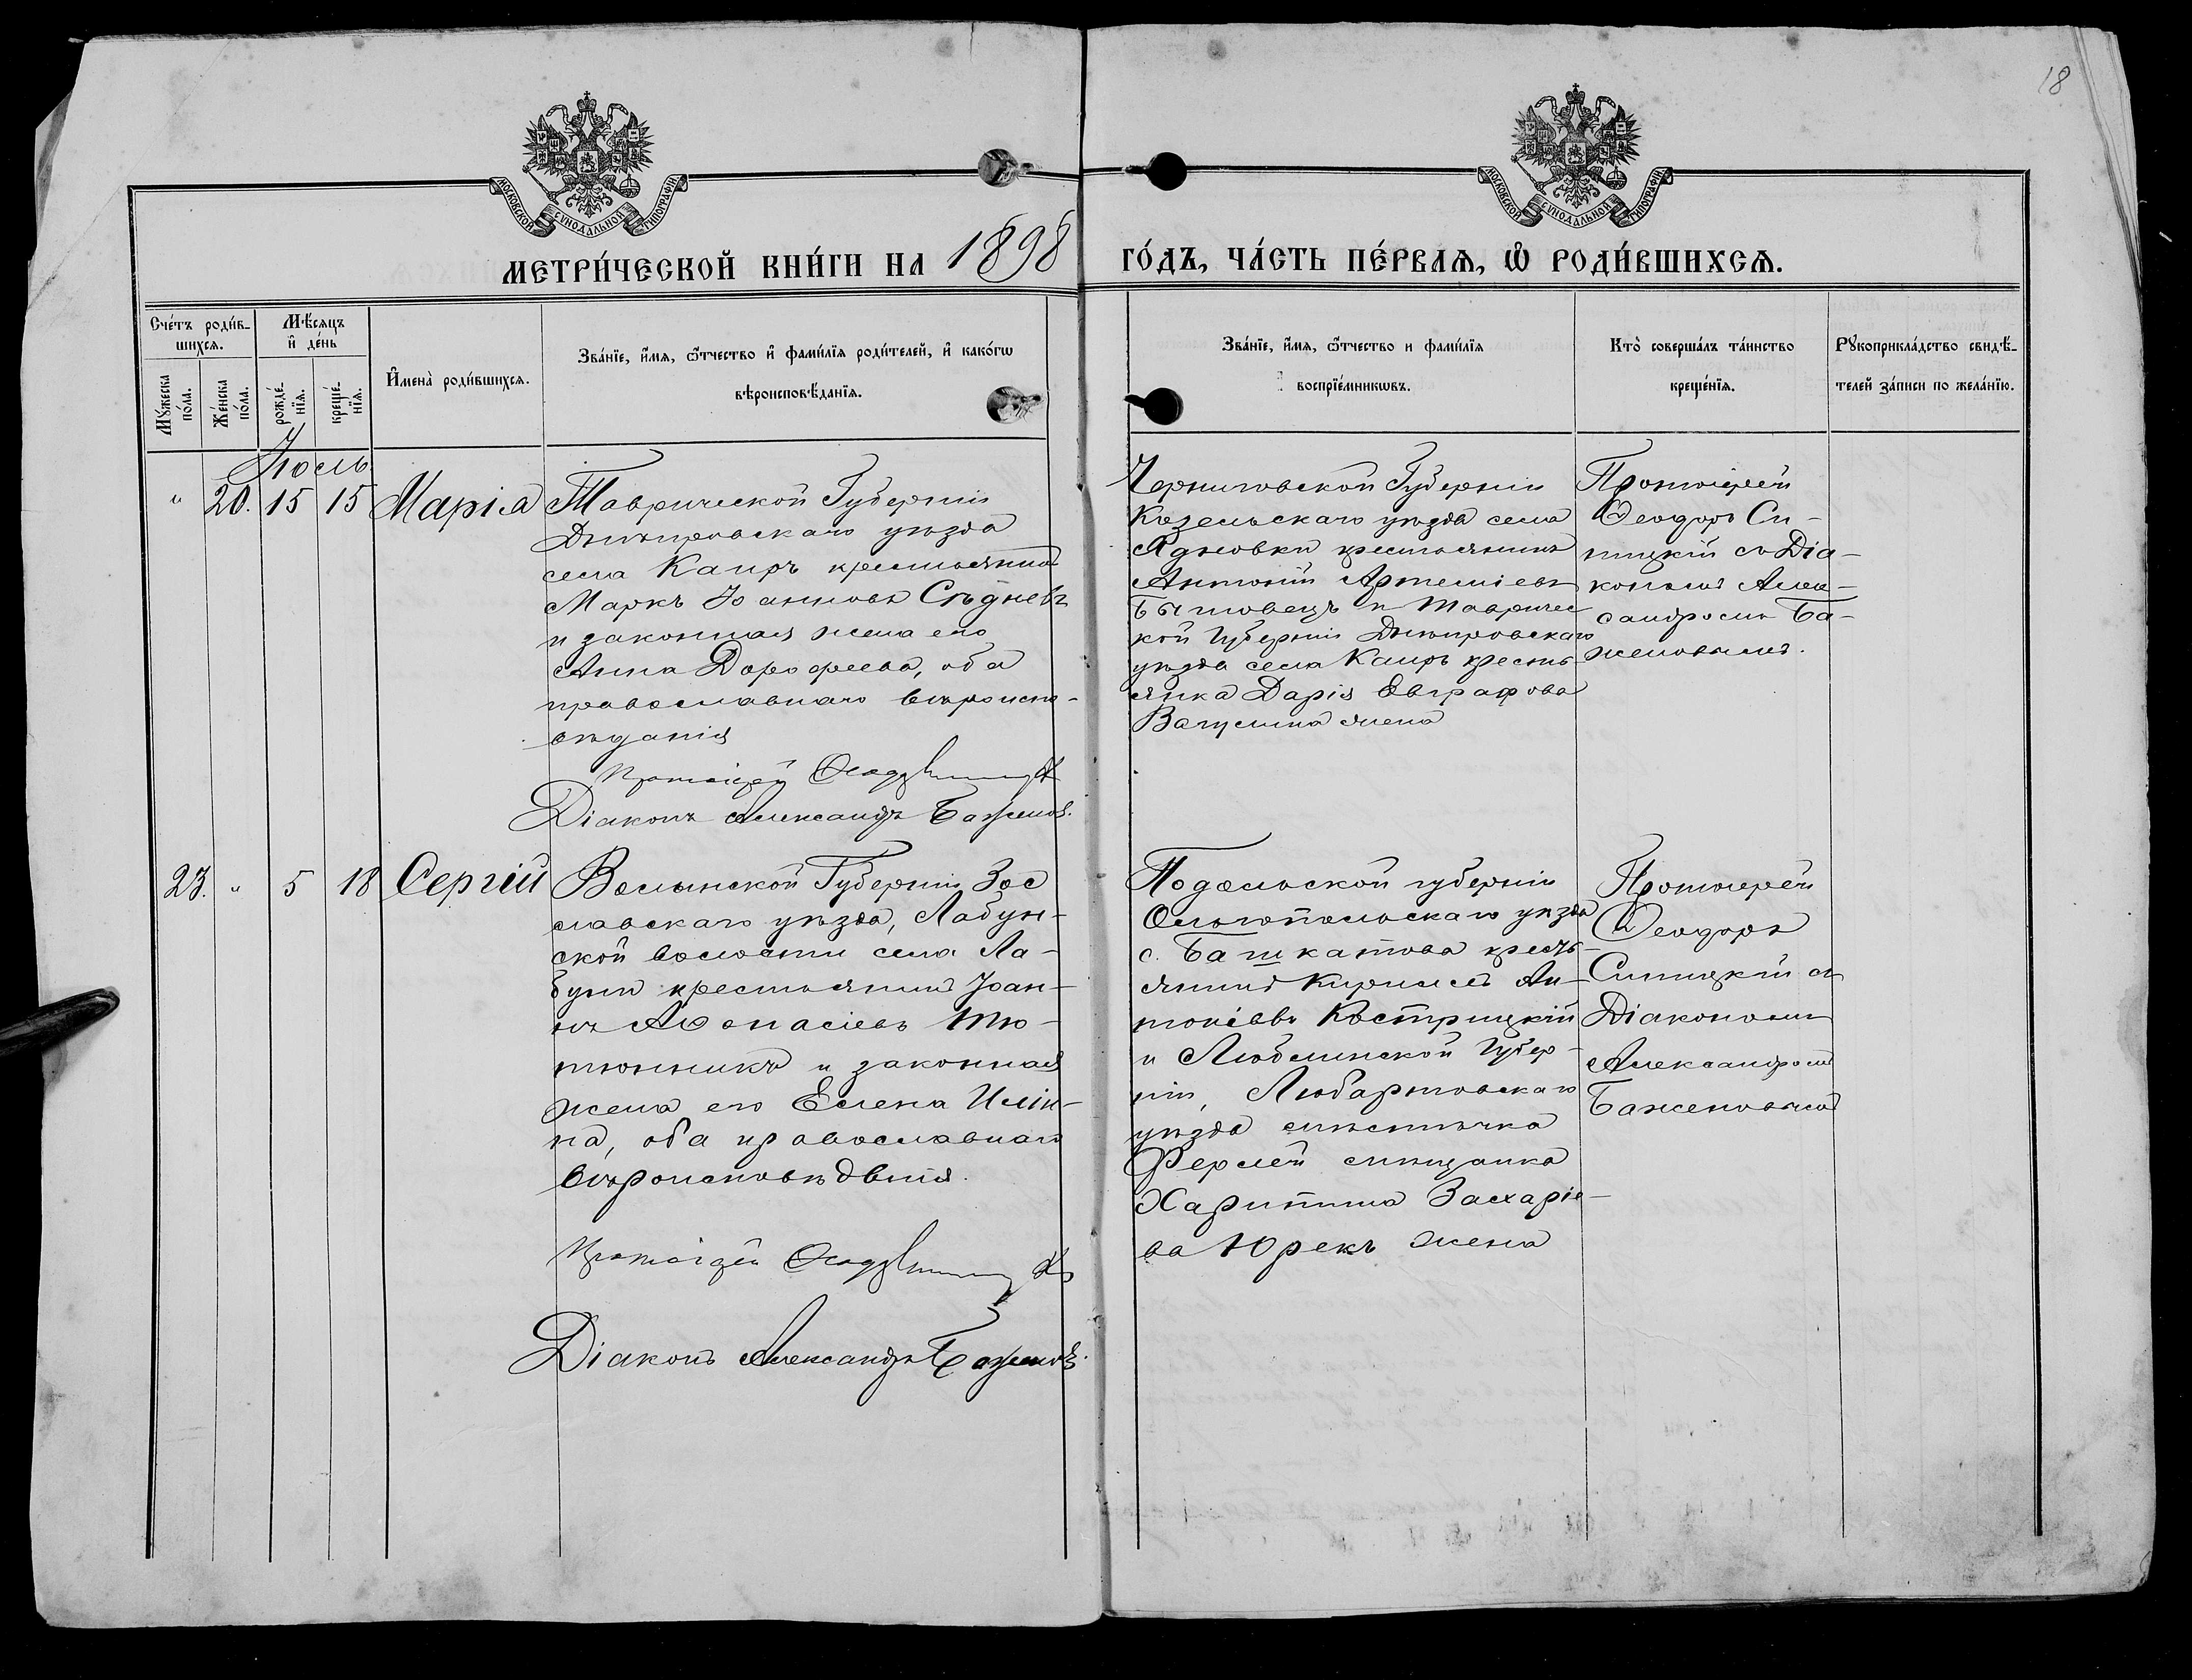 18
МОСКОВСКОЙ СѴНОДАЛЬНОЙ ТИПОГРАФІИ
МОСКОВСКОЙ СѴНОДАЛЬНОЙ ТИПОГРАФІИ
МЕТРИ́ЧЕСКОЙ КНИ́ГИ НА 1898 ГО́ДЪ, ЧА́СТЬ ПЕ́РВАѦ, Ѡ҆ РОДИ́ВШИХСѦ.
Сче́тъ роди́в-
шихсѧ.
Мѣ́сѧцъ
и҆ де́нь
Мꙋ́жеска
по́ла.
Же́нска
по́ла.
рожде́-
нїѧ.
креще́-
нїѧ.
И҆мена̀ роди́вшихсѧ.
Зва́нїе, и҆́мѧ, ѻ҆́тчество и҆ фами́лїѧ роди́телей, и҆ како́гѡ
вѣроисповѣ́данїѧ.
Зва́нїе, и҆́мѧ, ѻ҆́тчество и фами́лїѧ
воспрїе́мникѡвъ.
Кто̀ соверша́лъ та́инство
креще́нїѧ.
Рꙋкоприкла́дство свидѣ́-
телей за́писи по жела́нїю.
Іюль
" 20. 15 15 Марія
Таврической Губерніи
Днѣпровскаго уѣзда
села Каиръ крестьянинъ
Маркъ Іоанновъ Сѣдневъ
и законная жена его
Анна Дорофеева, оба
православнаго вѣроиспо-
вѣданія
Протоіерей
Діаконъ Александръ Баженовъ.
Черниговской Губерніи
Козельскаго уѣзда села
крестьянинъ
Антоній Артеміевъ
Бытовецъ и Тавричес
кой Губерніи Днѣпровскаго
уѣзда села Каиръ кресть-
янка Дарія Евграфова
жена
Протоіерей
Ѳеодоръ Си-
ницкій съ Діа-
кономъ Алек-
сандромъ Ба-
женовымъ.
23. " 5 18 Сергій
Волынской Губерніи Зас
славскаго уѣзда, Лабун-
ской волости села Ла-
буни крестьянинъ Іоан-
нъ Аѳанасіевъ Тю-
тюнникъ и законная
жена его Елена Илін-
на, оба православнаго
вѣроисповѣданія.
Протоіерей
Діаконъ Александръ Баженовъ.
Подольской губерніи
Ольгопольскаго уѣзда
с. Башкатова кресть-
янинъ Кириллъ Ан-
тоніевъ Кострицкій
и Люблинской Губер-
ніи, Любартовскаго
уѣзда мѣстечка
Фирлей мѣщанка
Харитина Захаріе-
ва Юрекъ жена
Протоіерей
Ѳеодоръ
Синицкій съ
Діакономъ
Александромъ
Баженовымъ